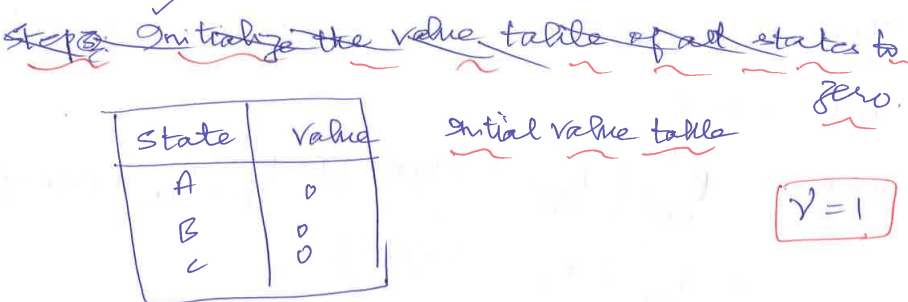 step②: Initialize the value table of all states to
zero.
State Value
Initial value table
A 0
B 0
C 0
γ = 1